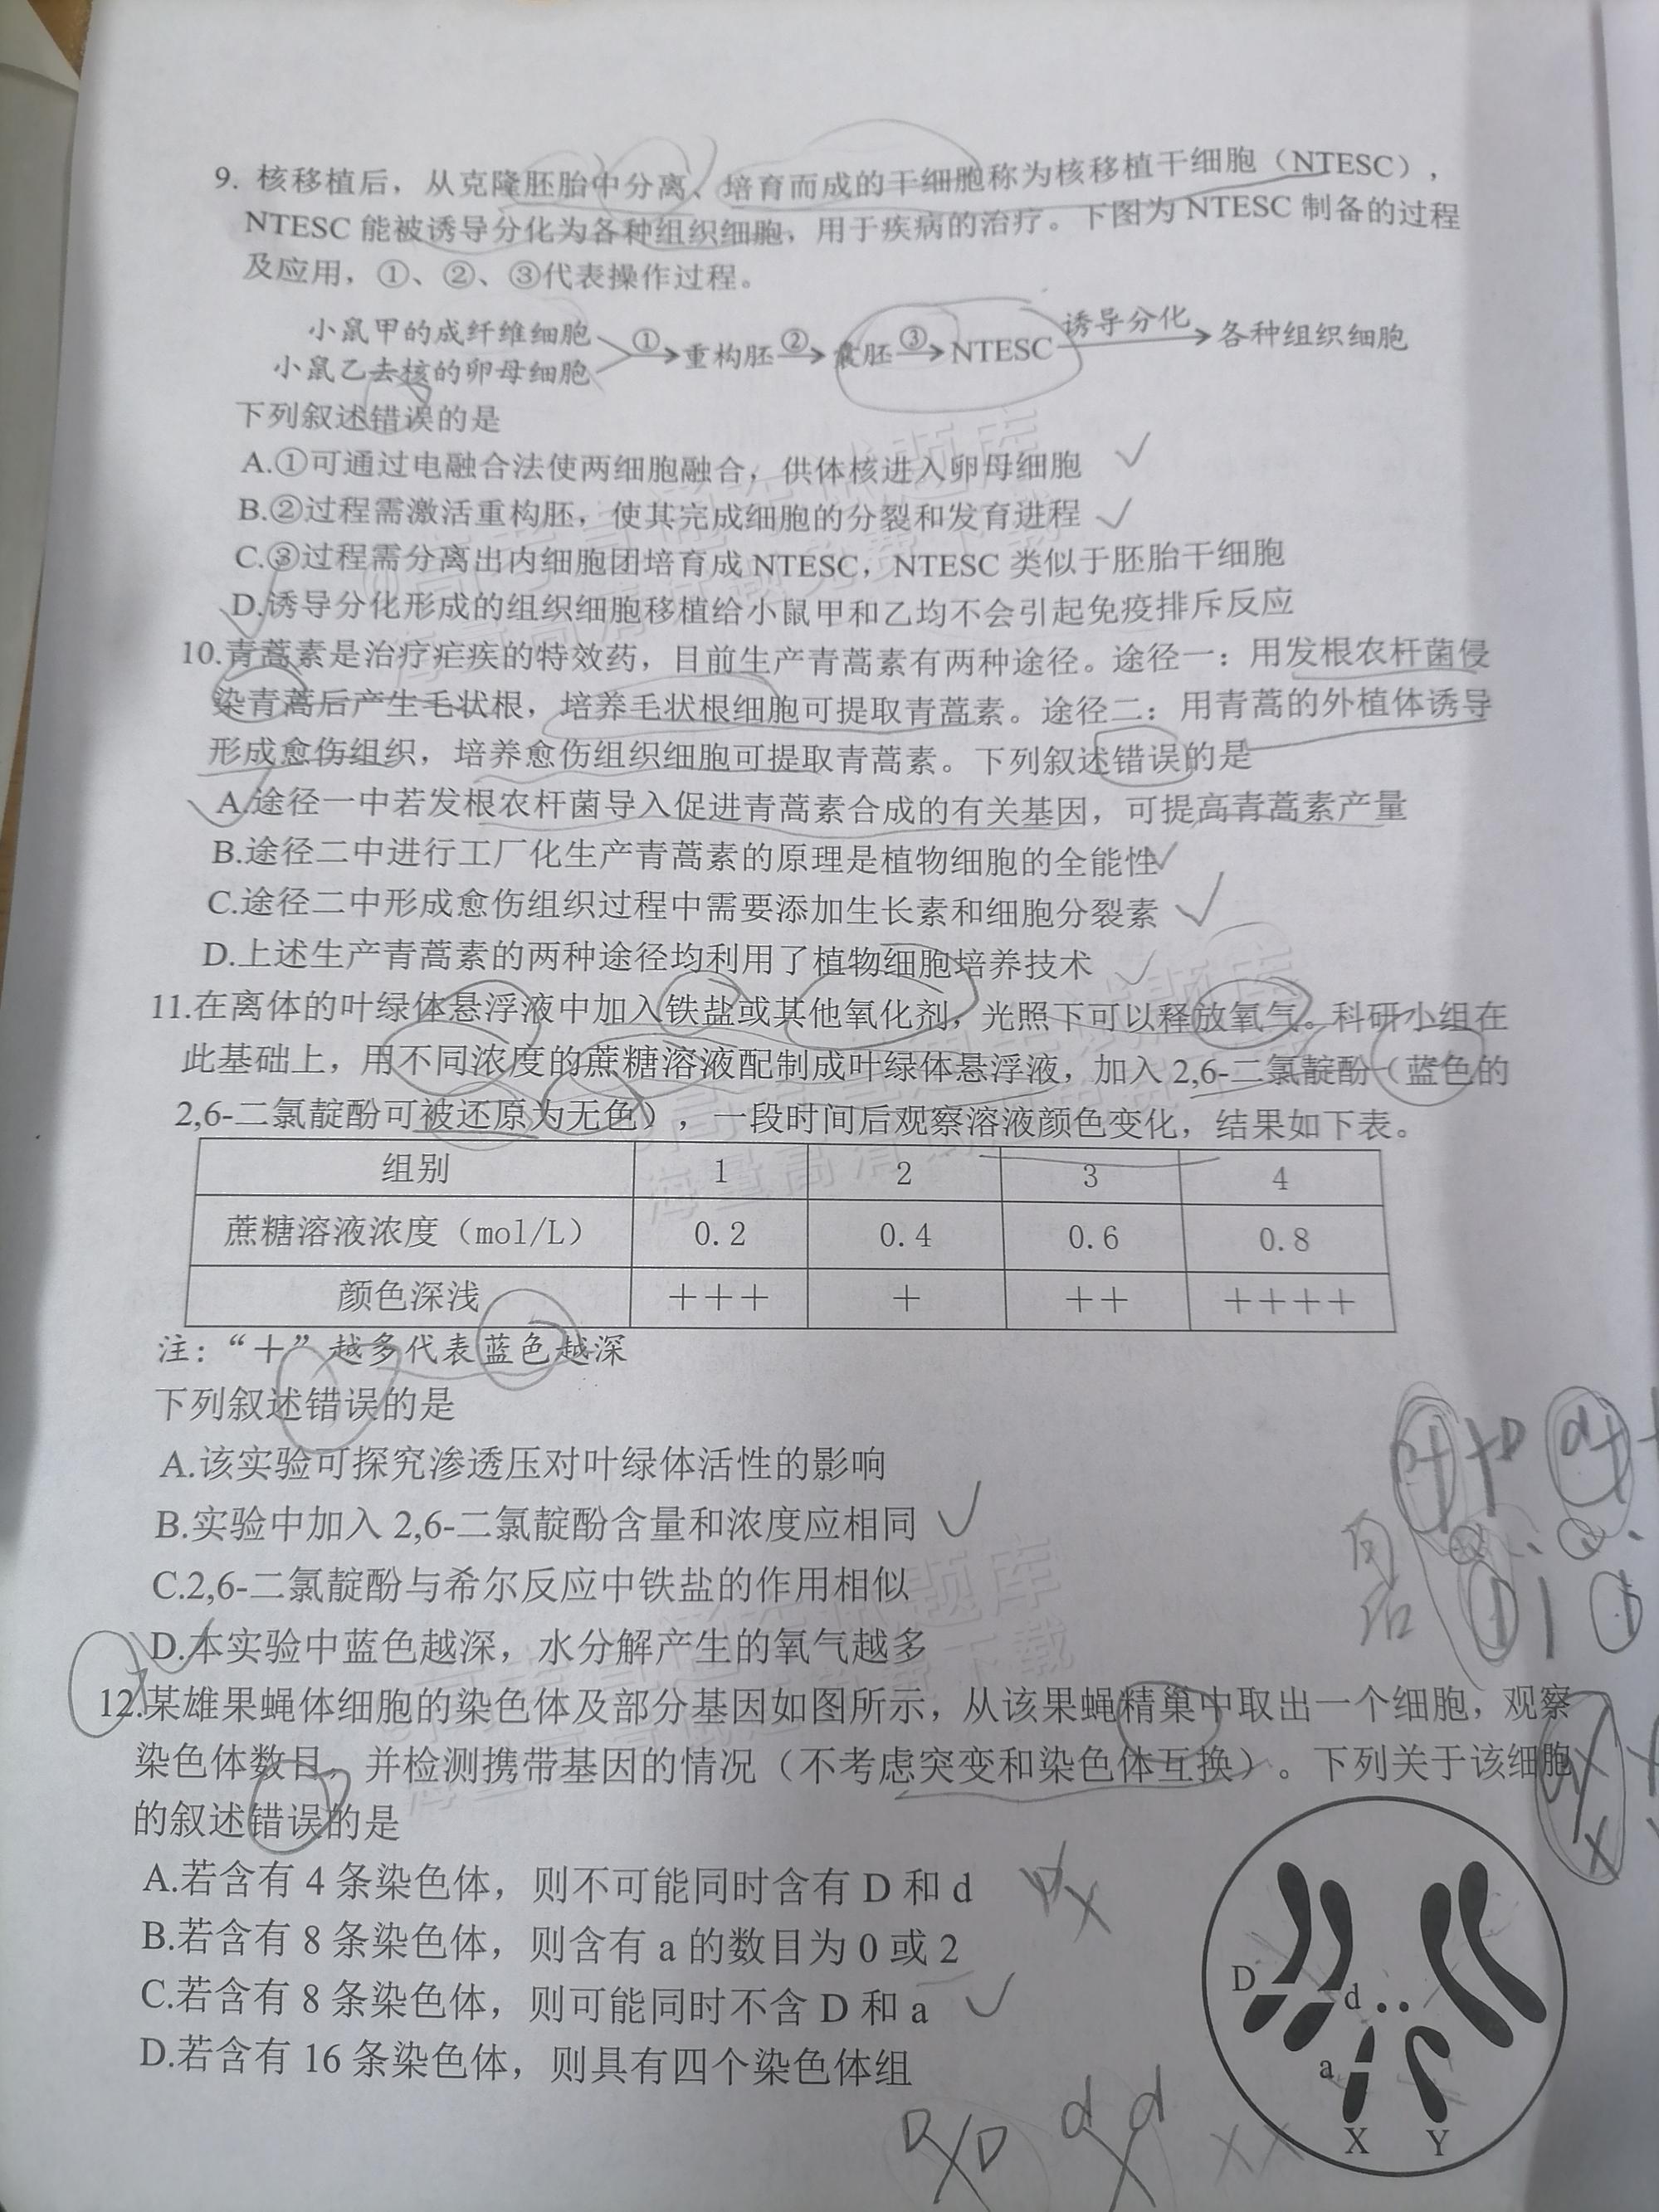 9. 核移植后，从克隆胚胎中分离、培育而成的干细胞称为核移植干细胞（NTESC），
NTESC 能被诱导分化为各种组织细胞，用于疾病的治疗。下图为 NTESC 制备的过程
及应用，①、②、③代表操作过程。
小鼠甲的成纤维细胞
小鼠乙去核的卵母细胞
① 重构胚 ② 囊胚 ③ NTESC 诱导分化 各种组织细胞
下列叙述错误的是
A.①可通过电融合法使两细胞融合，供体核进入卵母细胞
B.②过程需激活重构胚，使其完成细胞的分裂和发育进程
C.③过程需分离出内细胞团培育成 NTESC，NTESC 类似于胚胎干细胞
D.诱导分化形成的组织细胞移植给小鼠甲和乙均不会引起免疫排斥反应
10.青蒿素是治疗疟疾的特效药，目前生产青蒿素有两种途径。途径一：用发根农杆菌侵
染青蒿后产生毛状根，培养毛状根细胞可提取青蒿素。途径二：用青蒿的外植体诱导
形成愈伤组织，培养愈伤组织细胞可提取青蒿素。下列叙述错误的是
A.途径一中若发根农杆菌导入促进青蒿素合成的有关基因，可提高青蒿素产量
B.途径二中进行工厂化生产青蒿素的原理是植物细胞的全能性
C.途径二中形成愈伤组织过程中需要添加生长素和细胞分裂素
D.上述生产青蒿素的两种途径均利用了植物细胞培养技术
11.在离体的叶绿体悬浮液中加入铁盐或其他氧化剂，光照下可以释放氧气。科研小组在
此基础上，用不同浓度的蔗糖溶液配制成叶绿体悬浮液，加入 2,6-二氯靛酚（蓝色的
2,6-二氯靛酚可被还原为无色），一段时间后观察溶液颜色变化，结果如下表。
组别 1 2 3 4
蔗糖溶液浓度（mol/L） 0.2 0.4 0.6 0.8
颜色深浅 +++ + ++ ++++
注：“＋”越多代表蓝色越深
下列叙述错误的是
A.该实验可探究渗透压对叶绿体活性的影响
B.实验中加入 2,6-二氯靛酚含量和浓度应相同
C.2,6-二氯靛酚与希尔反应中铁盐的作用相似
D.本实验中蓝色越深，水分解产生的氧气越多
12.某雄果蝇体细胞的染色体及部分基因如图所示，从该果蝇精巢中取出一个细胞，观察
染色体数目，并检测携带基因的情况（不考虑突变和染色体互换）。下列关于该细胞
的叙述错误的是
A.若含有 4 条染色体，则不可能同时含有 D 和 d
B.若含有 8 条染色体，则含有 a 的数目为 0 或 2
C.若含有 8 条染色体，则可能同时不含 D 和 a
D.若含有 16 条染色体，则具有四个染色体组
D
d
a
X Y
D D d d